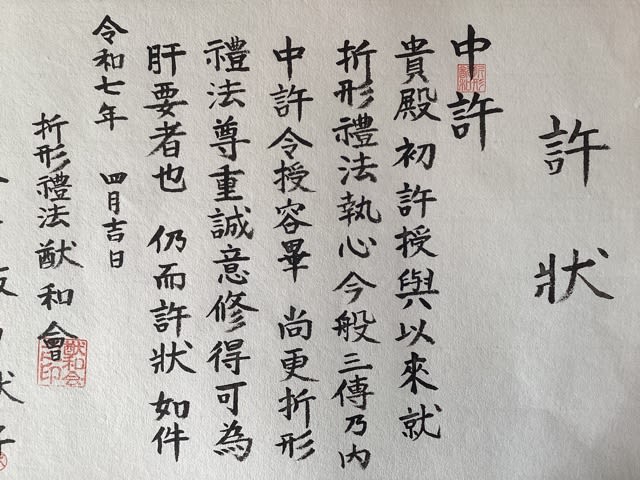 許狀
中許
貴殿初許授與以來就
折形禮法執心今般三傳乃内
中許令授容畢 尚更折形
禮法尊重誠意修得可為
肝要者也 仍而許狀 如件
令和七年 四月吉日
折形禮法猷和會